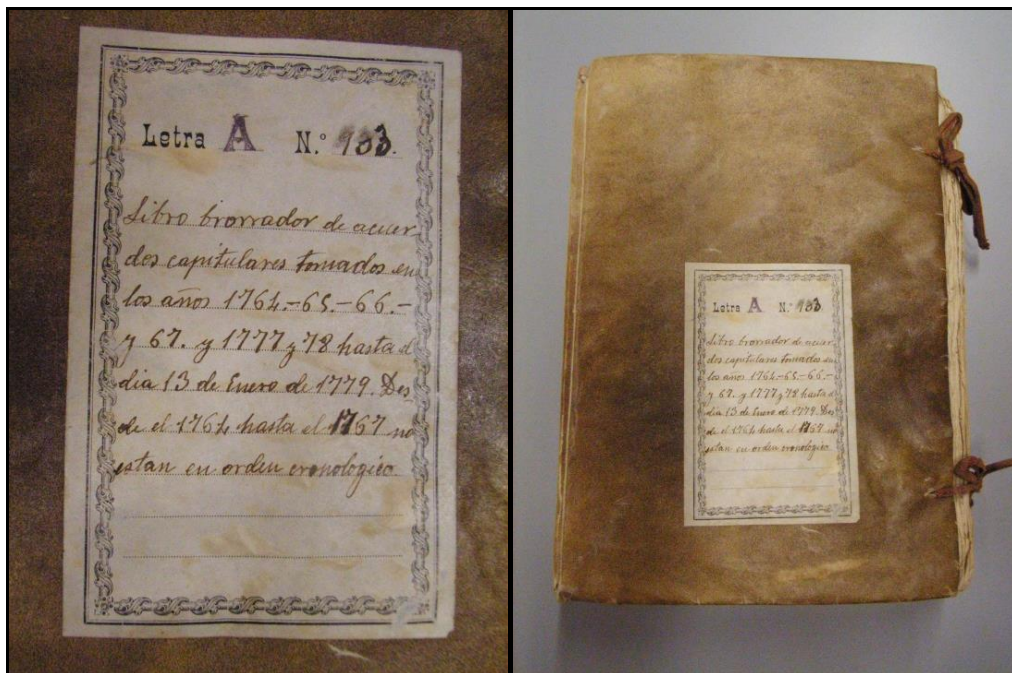 Letra A N.º 103.
Libro brorrador de acuer
dos capitulares tomados en
los años 1764.-65.-66.-
y 67. y 1777 y 78 hasta el
dia 13 de Enero de 1779. Des
de el 1764 hasta el 1767 no
estan en orden cronologico
Letra A N.º 103
Libro brorrador de acuer
dos capitulares tomados en
los años 1764-65-66-
y 67. y 1777 y 78 hasta el
dia 13 de Enero de 1779. Des
de el 1764 hasta el 1767 no
estan en orden cronologico